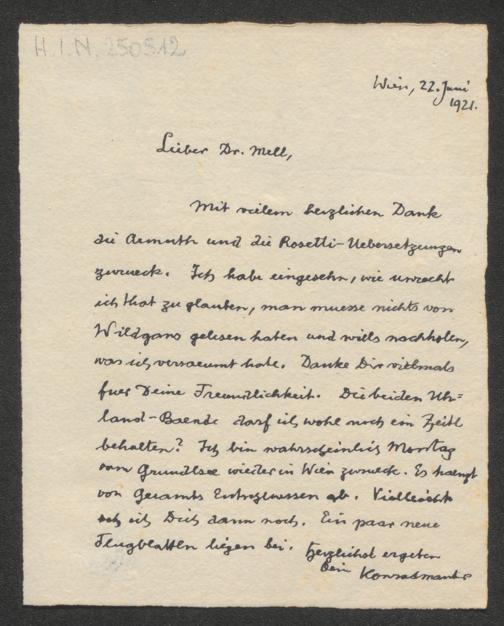 H.I.N. 250512
Wien, 22. Juni
1921.
Lieber Dr. Mell,
Mit vielem herzlichen Dank
die Armuth und die Rosetti-Uebersetzungen
zurueck. Ich habe eingesehn, wie unrecht
ich that zu glauben, man muesse nichts von
Wildgans gelesen haben und wills nachholen,
was ich versaeumt habe. Danke Dir vielmals
fuer Deine Freundlichkeit. Die beiden Uh=
land-Baende darf ich wohl noch ein Zeitl
behalten? Ich bin wahrscheinlich Montag
vom Grundlsee wieder in Wien zurueck. Es haengt
von Geramts Entschluessen ab. Vielleicht
seh ich Dich dann noch. Ein paar neue
Flugblattln liegen bei. Herzlichst ergeben
Dein